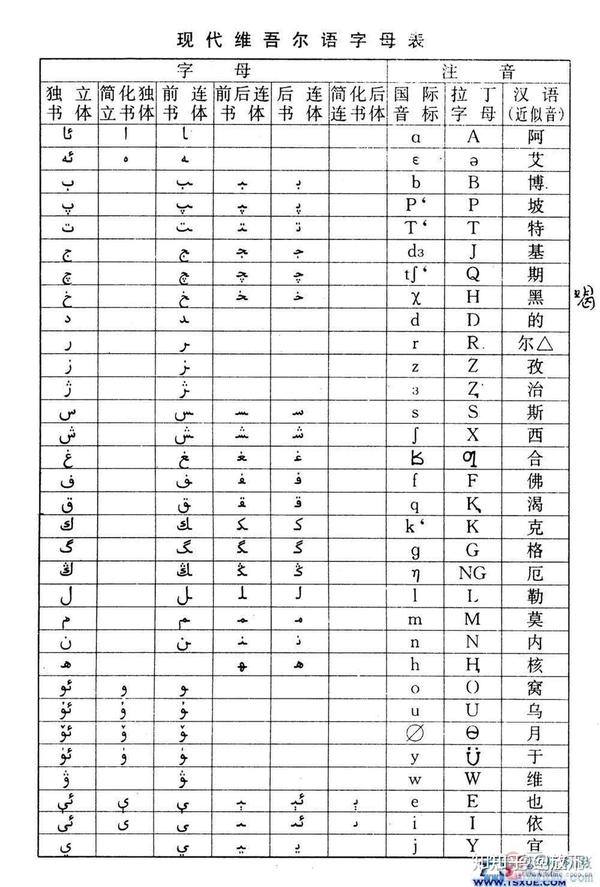 现代维吾尔语字母表
字母 注音
独立 简化独 前连 前后连 后连 简化后 国际 拉丁 汉语
书体 立书体 书体 书体 书体 连书体 音标 字母 (近似音)
ئا ا ـا ɑ A 阿
ئە ە ـە ɛ ə 艾
ب ـب ـبـ بـ b B 博
پ ـپ ـپـ پـ P‘ P 坡
ت ـت ـتـ تـ T‘ T 特
ج ـج ـجـ جـ dɜ J 基
چ ـچ ـچـ چـ tʃ‘ Q 期
خ ـخ ـخـ خـ χ H 黑 喝
د ـد d D 的
ر ـر r R. 尔△
ز ـز z Z 孜
ژ ـژ ɜ Ⱬ 治
س ـس ـسـ سـ s S 斯
ش ـش ـشـ شـ ʃ X 西
غ ـغ ـغـ غـ ʁ Ƣ 合
ف ـف ـفـ فـ f F 佛
ق ـق ـقـ قـ q Ⱪ 渴
ك ـك ـكـ كـ k‘ K 克
گ ـگ ـگـ گـ g G 格
ڭ ـڭ ـڭـ ڭـ η NG 厄
ل ـل ـلـ لـ l L 勒
م ـم ـمـ مـ m M 莫
ن ـن ـنـ نـ n N 内
ھ ـھـ ھـ h Ⱨ 核
ئو و ـو o O 窝
ئۇ ۇ ـۇ u U 乌
ئۆ ۆ ـۆ ∅ Ɵ 月
ئۈ ۈ ـۈ y Ü 于
ۋ ـۋ w W 维
ئې ې ـې ـېـ ئېـ ېـ e E 也
ئى ى ـى ـىـ ئىـ ىـ i I 依
ي ـي ـيـ يـ j Y 宜
WWW.TSXUE.COM